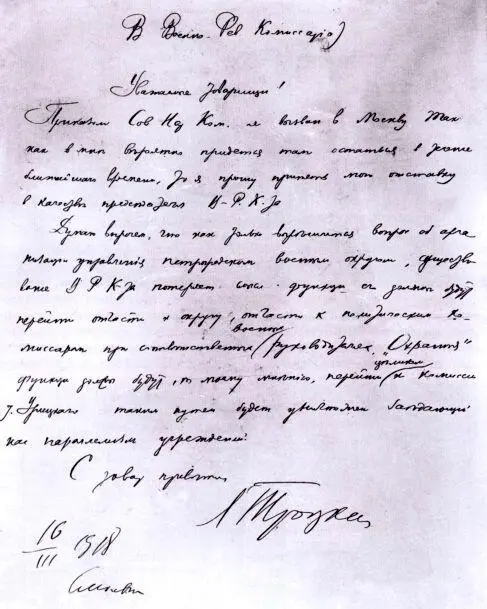 В Военно-Рев Комиссариат
Уважаемые товарищи!
Приказом Сов Нар Ком. я вызван в Москву Так
как мне вероятно придется там остаться в течение
ближайшего времени, то я прошу принять мою отставку
в качестве председателя В-Р.К-та
Думаю впрочем, что как только вырешится вопрос об орга
низации управления петроградским военным округом,
В Р К-та потеряет смысл. функции его должны будут
перейти отчасти к округу, отчасти к политическим Ко
миссарам при
военных
руководителях. "Охранная"
функция должна будут, по моему мнению, перейти к комисси
целиком
т. Урицкого таким путем будет уничтожен
параллелизм учреждений
С товар приветом
Л Троцкий
16
III 1918
Смольный